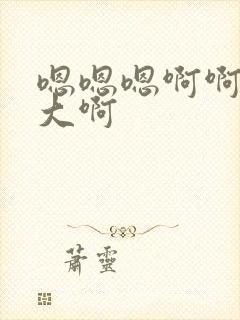 嗯嗯嗯啊啊
大啊
蕭靈